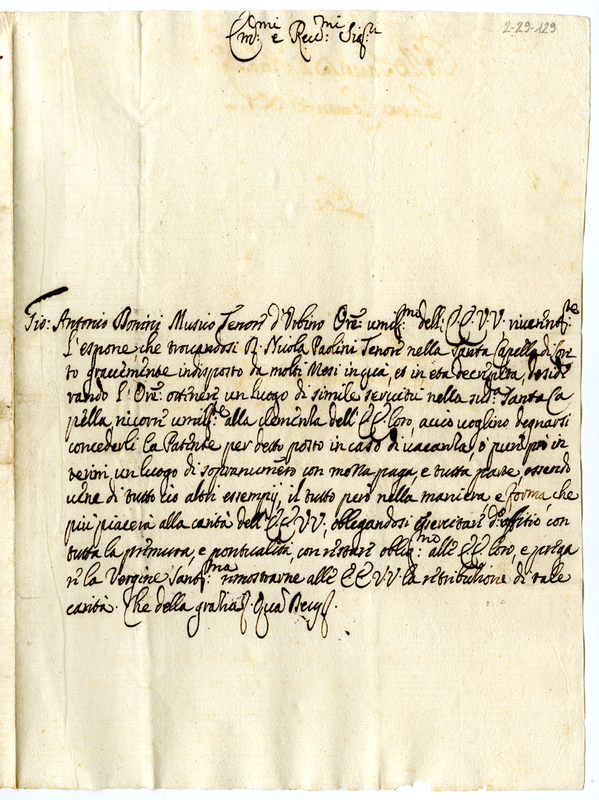 Em:mi e Reu:mi Sig:ri
2-29-129
Gio: Antonio Bonini Musico Tenore d'Urbino Ore: umilis:mo dell: EE. VV. riuerentem:te
L'espone, che trouandosi il Nicola Paolini Tenore nella Santa Capella di Lore
to grauemente indisposto da molti Mesi in quà, et in età decrepita, deside
rando l'Ore: ottenere un luogo di simile seruitù nella sud:a Santa Ca
pella, ricorre umilm:te alla clemenza dell'EE loro, acciò uoglino degnarsi
concederli la Patente per detto posto in caso di uacanza, ò pure pro in
terim, un luogo di sopranumero con meza paga, e tutta parte, essendo
uene di tutto ciò altri essempij, il tutto però nella maniera e forma, che
più piacerà alla carità dell'EE VV, obligandosi esercitare d:o offitio con
tutta la premura, e pontualità, con restare oblig:mo all: EE loro, e prega
re la Vergine Sant:ma rimostrarne all: EE VV la retributione di tale
carità. Che della gratia &. Quam Deus &.